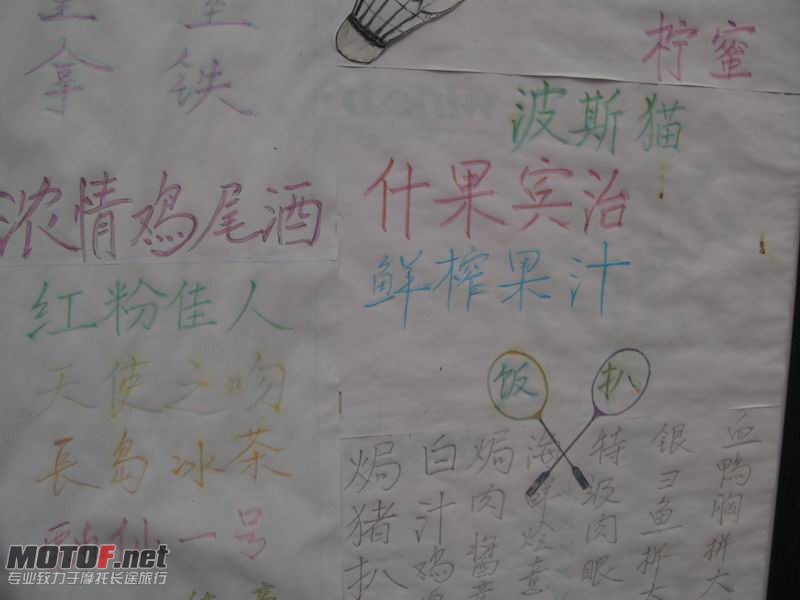 拿 铁
浓情鸡尾酒
红粉佳人
天使之吻
長岛冰茶
酔仙一号
柠蜜
波斯猫
什果宾治
鲜榨果汁
饭 扒
焗猪扒
白汁鸡
焗肉酱意
海鲜烩意
特级肉眼
银ヨ鱼拼大
血鸭胸拼大
MOTOF.net
专业致力于摩托长途旅行